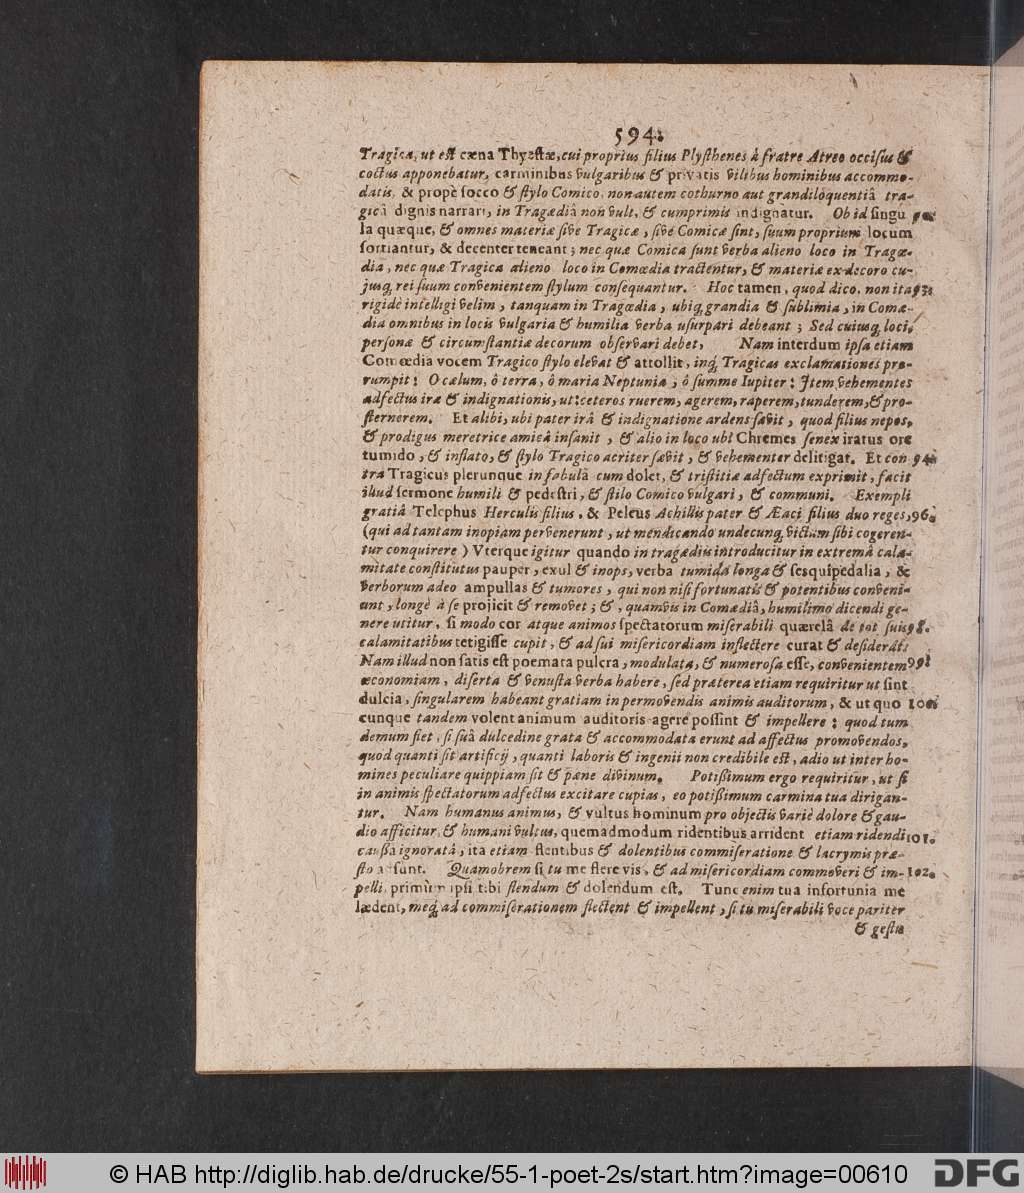 594.
Tragica, ut est cæna Thyestæ, cui proprius filius Plysthenes à fratre Atreo occisus &
coctus apponebatur, carminibus vulgaribus & privatis vilibus hominibus accommo-
datis, & propè socco & stylo Comico, non autem cothurno aut grandiloquentiâ tra-
gicâ dignis narrari, in Tragædiâ non vult, & cumprimis indignatur. Ob id singu
la quæque, & omnes materiæ sive Tragicæ, sivè Comicæ sint, suum proprium locum
sortiantur, & decenter teneant; nec quæ Comica sunt verba alieno loco in Tragæ-
dia, nec quæ Tragica alieno loco in Comœdia tractentur, & materiæ ex decoro cu-
jusq; rei suum convenientem stylum consequantur. Hoc tamen, quod dico, non ita 93.
rigidè intelligi velim, tanquam in Tragædia, ubiq; grandia & sublimia, in Comæ-
dia omnibus in locis vulgaria & humilia verba usurpari debeant; Sed cuiusq; loci,
personæ & circumstantiæ decorum observari debet, Nam interdum ipsa etiam
Comœdia vocem Tragico stylo elevat & attollit, inq; Tragicas exclamationes pro-
rumpit: O cælum, ô terra, ô maria Neptunia, ô summe Iupiter: Item vehementes
adfectus iræ & indignationis, ut: ceteros ruerem, agerem, raperem, tunderem, & pro-
sternerem. Et alibi, ubi pater irâ & indignatione ardens sævit, quod filius nepos,
& prodigus meretrice amicâ insanit, & alio in loco ubi Chremes senex iratus ore
tumido, & inflato, & stylo Tragico acriter sævit, & vehementer delitigat. Et con 94.
tra Tragicus plerunque in fabulâ cum dolet, & tristitiæ adfectum exprimit, facit
illud sermone humili & pedestri, & stilo Comico vulgari, & communi. Exempli
gratiâ Telephus Herculis filius, & Peleus Achillis pater & Æaci filius duo reges, 96.
(qui ad tantam inopiam pervenerunt, ut mendicando undecunq; victum sibi cogeren-
tur conquirere) Vterque igitur quando in tragædiis introducitur in extremâ cala-
mitate constitutus pauper, exul & inops, verba tumida longa & sesquipedalia, &
verborum adeo ampullas & tumores, qui non nisi fortunatis & potentibus conveni-
unt, longè à se projicit & removet; &, quamvis in Comœdiâ, humilimo dicendi ge-
nere utitur, si modo cor atque animos spectatorum miserabili quærelâ de tot suis 98.
calamitatibus tetigisse cupit, & ad sui misericordiam inflectere curat & desiderat:
Nam illud non satis est poemata pulcra, modulata, & numerosa esse, convenientem 99
œconomiam, diserta & venusta verba habere, sed præterea etiam requiritur ut sint
dulcia, singularem habeant gratiam in permovendis animis auditorum, & ut quo 100.
cunque tandem volent animum auditoris agere possint & impellere: quod tum
demum fiet, si suâ dulcedine grata & accommodata erunt ad affectus promovendos,
quod quanti sit artificij, quanti laboris & ingenii non credibile est, adio ut inter ho-
mines peculiare quippiam sit & pæne divinum. Potißimum ergo requiritur, ut si
in animis spectatorum adfectus excitare cupias, eo potißimum carmina tua dirigan-
tur. Nam humanus animus, & vultus hominum pro objectis variè dolore & gau-
dio afficitur, & humani vultus, quemadmodum ridentibus arrident etiam ridendi 101.
caußa ignoratâ, ita etiam flentibus & dolentibus commiseratione & lacrymis præ-
sto adsunt. Quamobrem si tu me flere vis, & ad misericordiam commoveri & im- 102.
pelli, primùm ipsi tibi flendum & dolendum est. Tunc enim tua infortunia me
lædent, meq; ad commiserationem flectent & impellent, si tu miserabili voce pariter
& gestu
© HAB http://diglib.hab.de/drucke/55-1-poet-2s/start.htm?image=00610
DFG